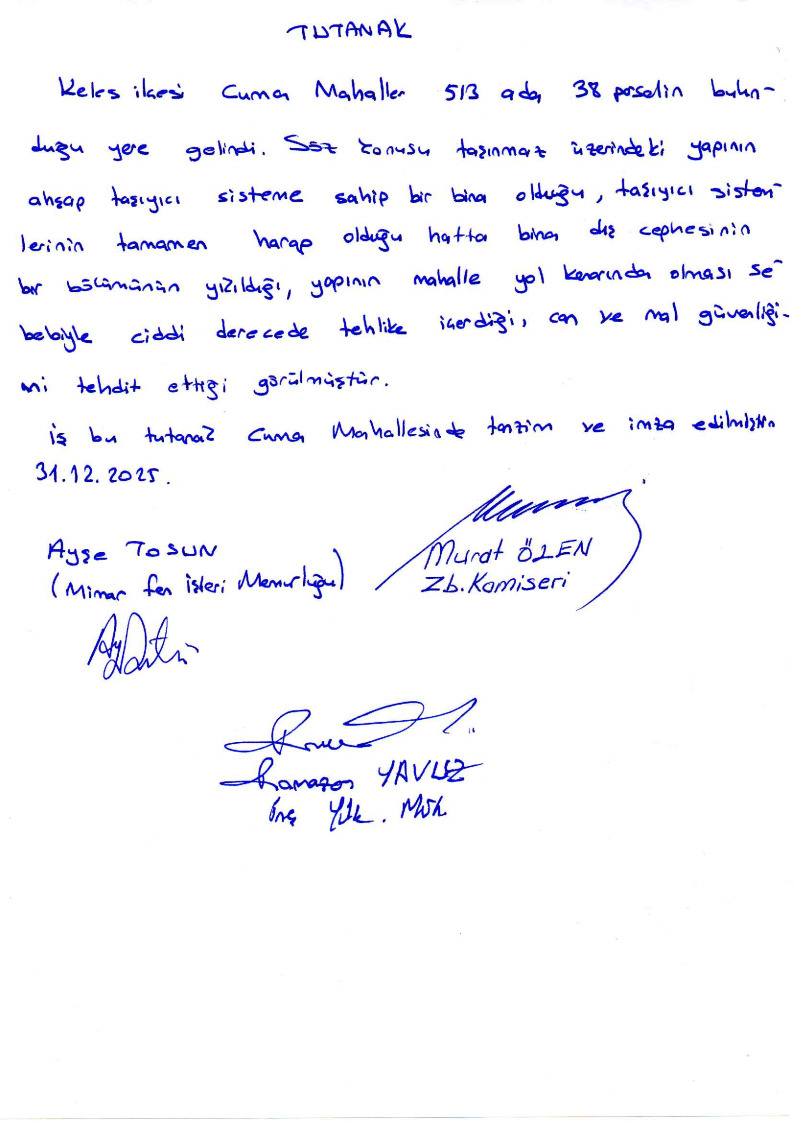 TUTANAK
Keles ilçesi Cuma Mahallesi 513 ada, 38 parselin bulun-
duğu yere gelindi. Söz konusu taşınmaz üzerindeki yapının
ahşap taşıyıcı sisteme sahip bir bina olduğu, taşıyıcı sistem-
lerinin tamamen harap olduğu hatta bina dış cephesinin
bir bölümünün yıkıldığı, yapının mahalle yol kenarında olması se-
bebiyle ciddi derecede tehlike içerdiği, can ve mal güvenliği-
ni tehdit ettiği görülmüştür.
iş bu tutanak Cuma Mahallesinde tanzim ve imza edilmiştir
31.12.2025.
Ayşe TOSUN
(Mimar fen işleri Memurluğu)
Murat ÖZEN
Zb. Komiseri
Ramazan YAVUZ
İnş Yük. Müh.